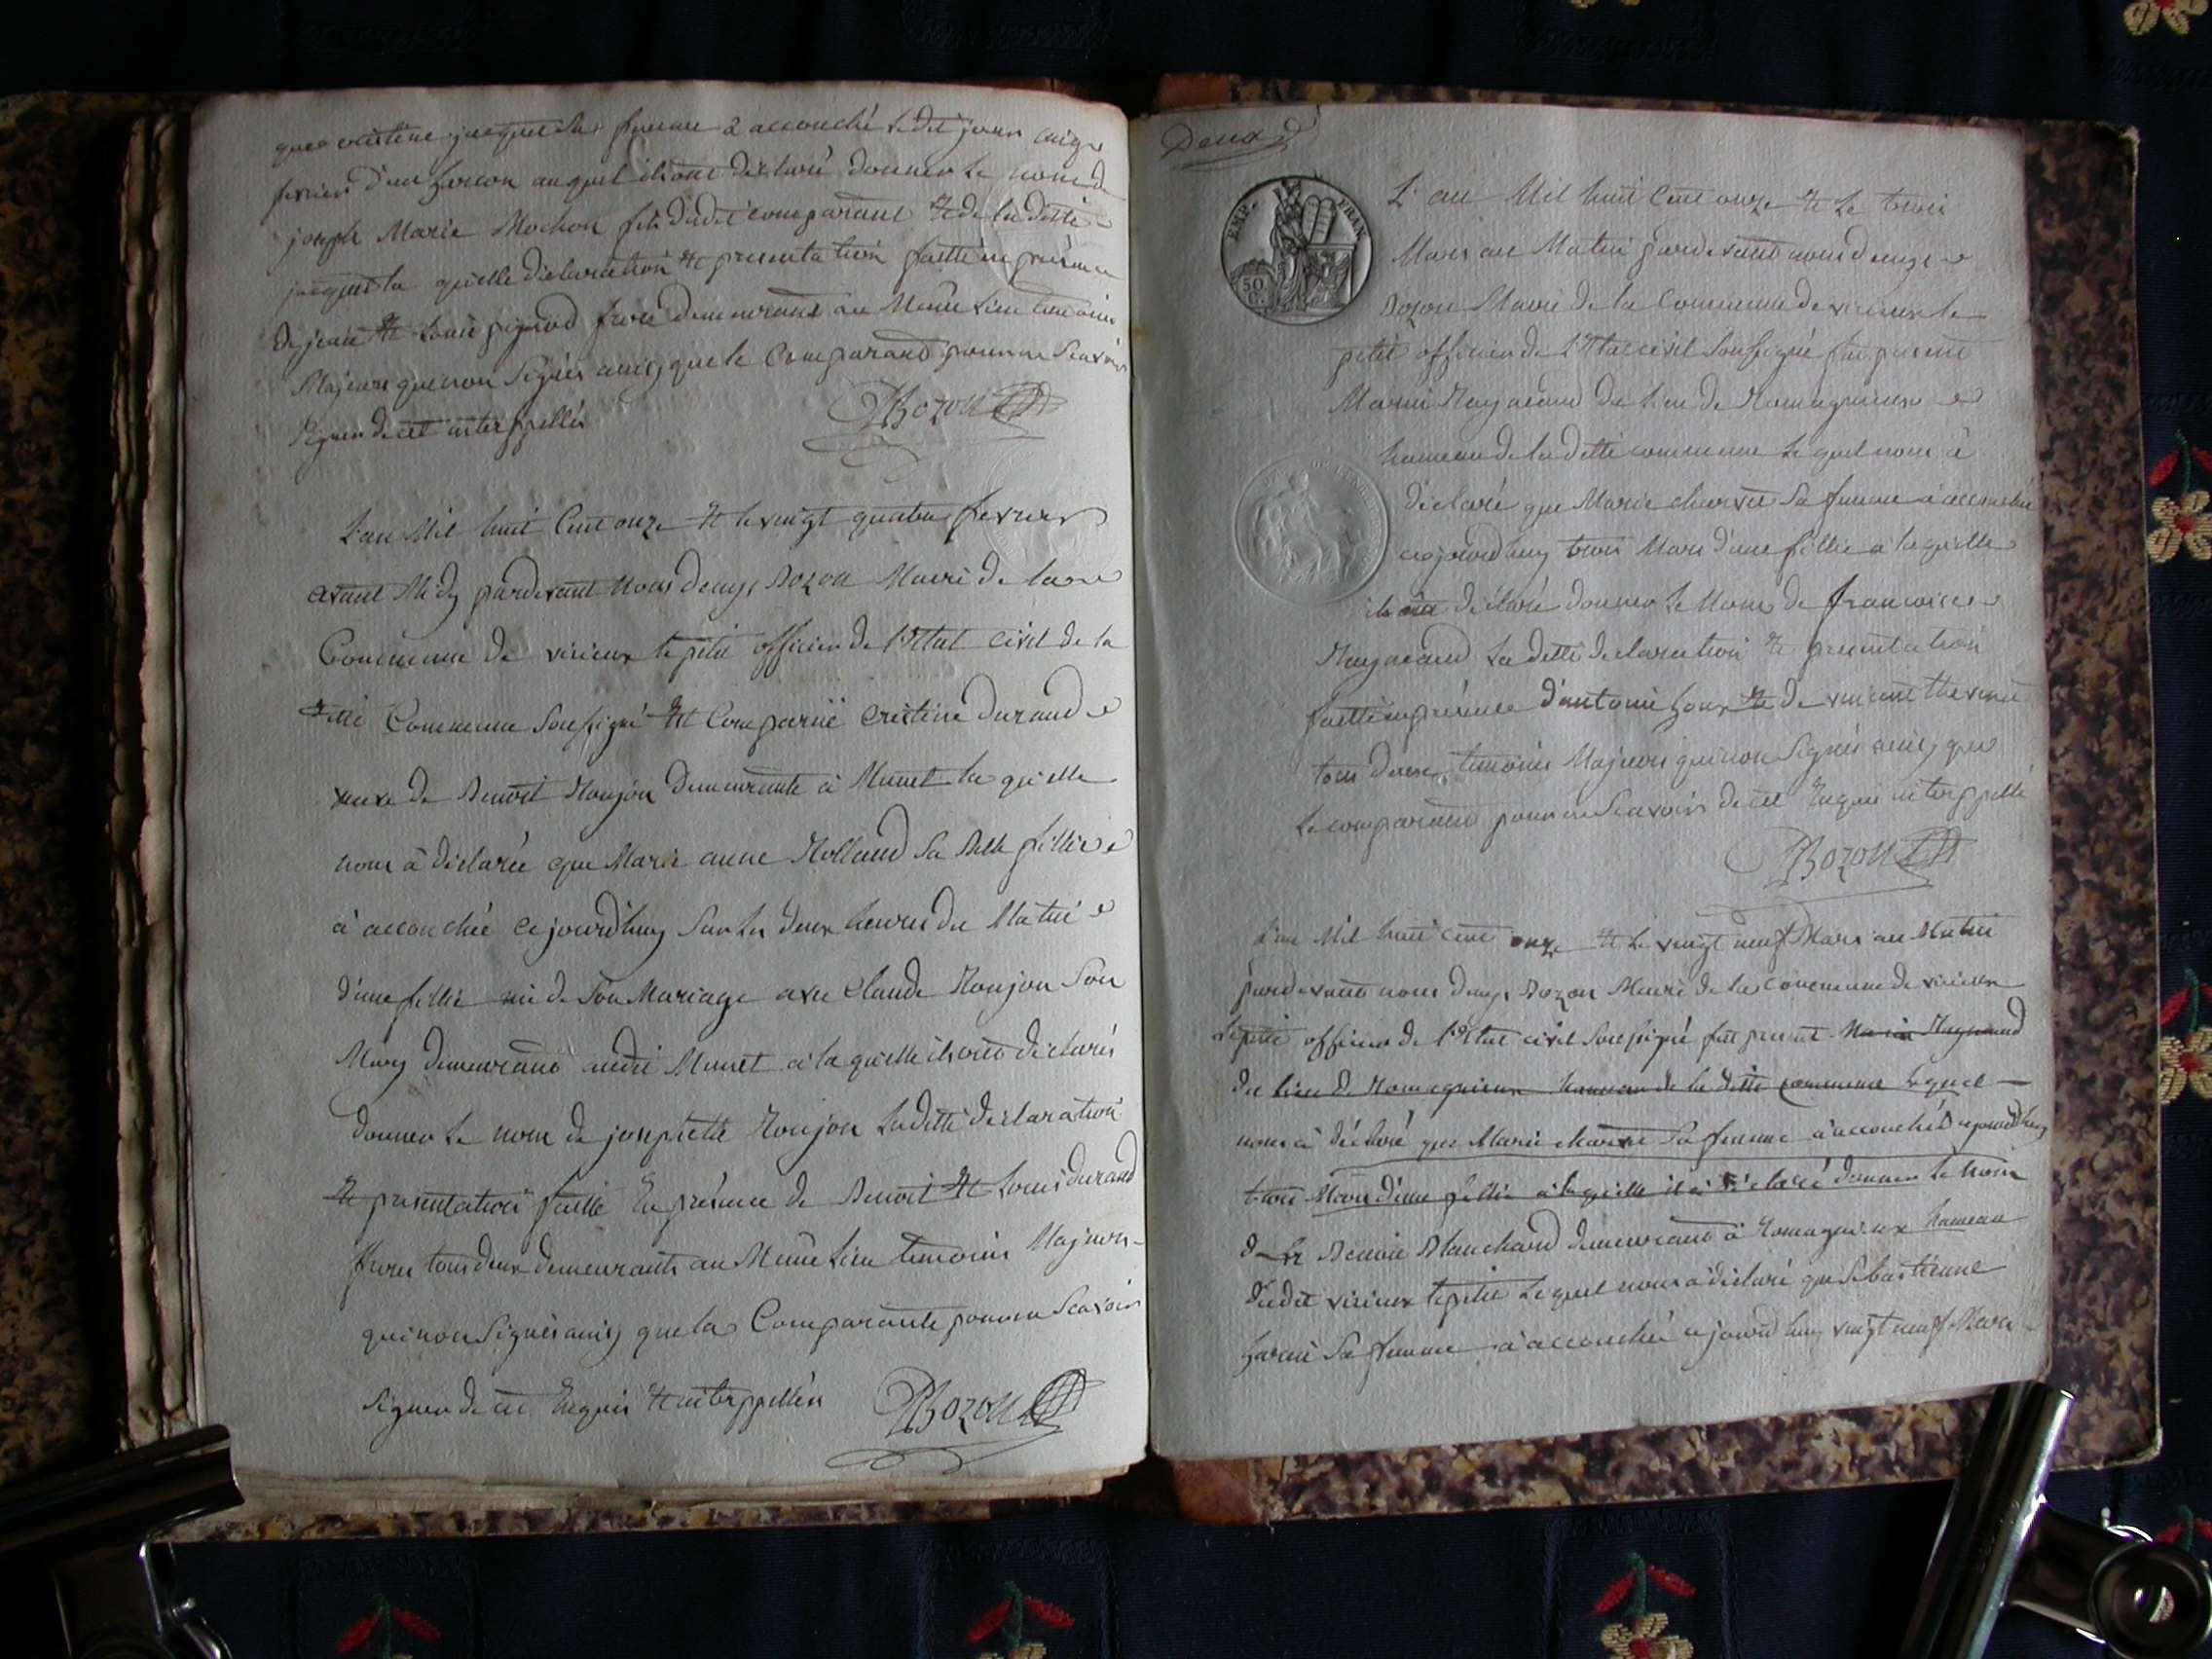 femme a accouché le dit jour cinq
fevrier d'un garcon auquel ils ont declaré donner le nom de
joseph Marie Mochon fils dudit comparant et de la ditte
jacquet la quelle declaration et presentation faitte en présence
de jean et Louis pignod frere demeurant au Meme Lieu temoins
Majeurs que non Signés avec que le Comparant pour ne Scavoir
Signer de ce interppellés
Bozon
L'an Mil huit Cent onze et le vingt quatre fevrier
avant Midy pardevant Nous denys Bozon Maire de la
Commune de virieux le petit officier de l'Etat Civil de la
ditte Commune Soussigné Est Comparue Cristine durand
veuve de Benoit Roujon demeurante à Munet la quelle
nous à declarée que Marie anne Rolland Sa Belle fillie
à accouchée cejourd'huy Sur les deux heures du Matin
d'une fillie née de Son Mariage avec Claude Roujon Son
Mary demeurant audit Munet à la quelle ils ont déclarés
donner le nom de josephette Roujon La ditte declaration
et presentation faitte En présence de Benoit et Louis durand
freres tous deux demeurants au Meme Lieu temoins Majeurs
qui non Signés avec que la Comparante pour ne Scavoir
Signer de ce Enquis et interppellés
Bozon
Deux
L'an Mil huit Cent onze et Le trois
Mars au Matin pardevant nous denys
Bozon Maire de la Commune de virieux le
petit officier de l'Etat civil Soussigné fut present
Marin Raynaud du Lieu de Romagnieux
hameau de la ditte commune Le quel nous à
déclaré que Marie charvet Sa femme à accouchée
cejourdhuy trois Mars d'une fillie à laquelle
ils ont déclaré donner Le Nom de francoise
Raynaud La ditte declaration et presentation
faitte en présence d'antoine et de vincent thevenet
tous deux temoins Majeurs qui non Signés avec que
Le comparant pour ne Scavoir de ce Enquis interppellé
Bozon
L'an Mil huit cent onze et Le vingt neuf Mars au Matin
pardevant nous denys Bozon Maire de la Commune de virieux
Le petit officier de l'Etat civil Soussigné fut present Marin Raynaud
du Lieu de Romagnieux hameau de la ditte commune Lequel
nous à déclaré que Marie charvet Sa femme à accouchée cejourdhuy
trois Mars d'une fillie à laquelle il à déclaré donner Le Nom
de Benoit Blanchard demeurant à Romagnieux hameau
dudit virieux le petit Le quel nous à déclaré que Sebastienne
Sa femme à accouchée cejourdhuy vingt neuf Mars
EMP. FRAN.
50 C.